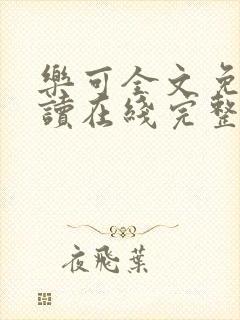 樂可全文免
讀在綫完整
夜飛葉